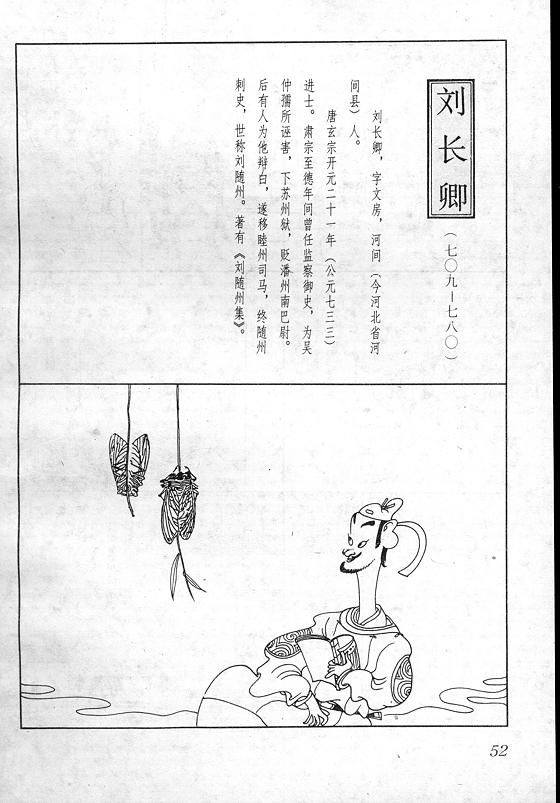 刘长卿
（七〇九—七八〇）
刘长卿，字文房，河间（今河北省河
间县）人。
唐玄宗开元二十一年（公元七三三）
进士。肃宗至德年间曾任监察御史，为吴
仲孺所诬害，下苏州狱，贬潘州南巴尉。
后有人为他辩白，遂移睦州司马，终随州
刺史，世称刘随州。著有《刘随州集》。
52